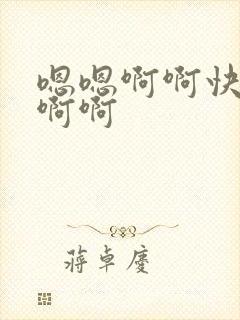 嗯嗯啊啊快
啊啊
蒋卓庆